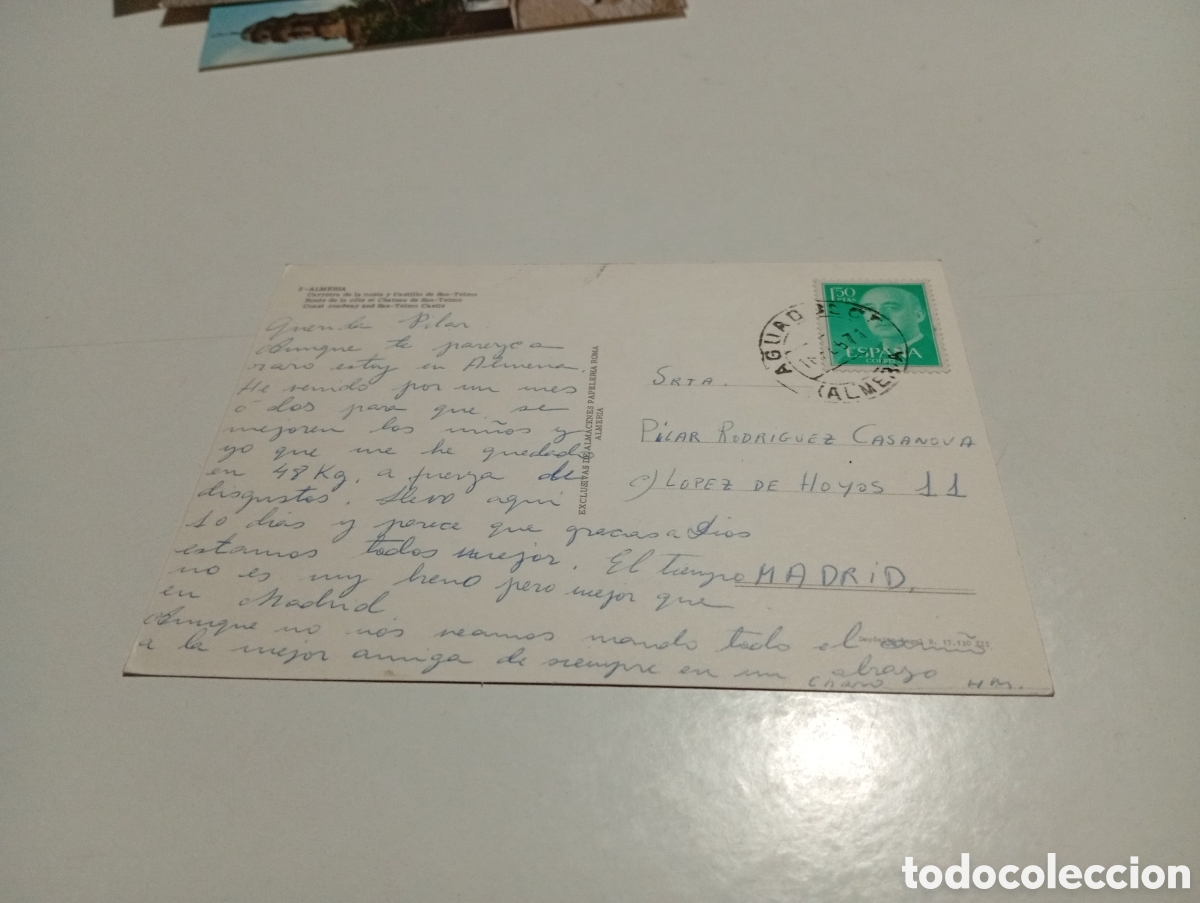 2-ALMERIA
Carretera de la costa y Castillo de San-Telmo
Route de la côte et Chateau de San-Telmo
Coast roadway and San-Telmo Castle
Querida Pilar
Aunque te parezca
raro estoy en Almeria.
He venido por un mes
ó dos para que se
mejoren los niños y
yo que me he quedado
en 48 Kg. a fuerza de
disgustos. Llevo aquí
10 dias y parece que gracias a Dios
estamos todos mejor. El tiempo
no es muy bueno pero mejor que
en Madrid
Aunque no nos veamos mando todo el cariño
a la mejor amiga de siempre en un abrazo
Charo
EXCLUSIVAS DE ALMACENES PAPELERIA ROMA
ALMERIA
1,50
PTAS
ESPAÑA
CORREOS
AGUADULCE
(ALMERIA
SRTA.
PILAR RODRIGUEZ CASANOVA
c) LOPEZ DE HOYOS 11
MADRID.
todocoleccion